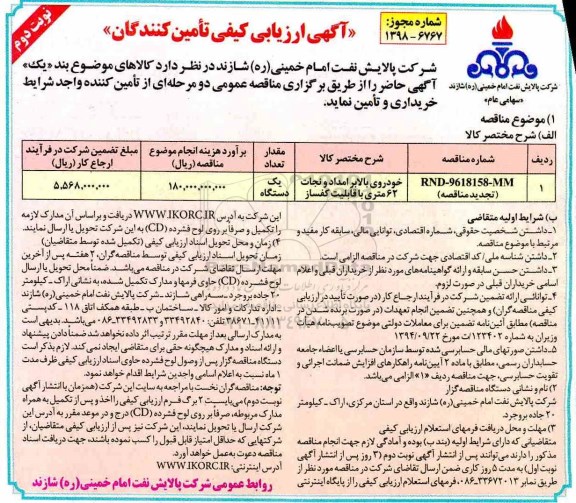 نوبت دوم
«آگهی ارزیابی کیفی تأمین کنندگان»
شماره مجوز:
۱۳۹۸-۶۷۶۷
شرکت پالایش نفت امام خمینی(ره) شازند
«سهامی عام»
شرکت پالایش نفت امام خمینی(ره) شازند در نظر دارد کالاهای موضوع بند «یک»
آگهی حاضر را از طریق برگزاری مناقصه عمومی دو مرحله‌ای از تأمین کننده واجد شرایط
خریداری و تأمین نماید.
۱) موضوع مناقصه
الف) شرح مختصر کالا
ردیف شماره مناقصه شرح مختصر کالا مقدار تعداد برآورد هزینه انجام موضوع مناقصه (ریال) مبلغ تضمین شرکت در فرآیند ارجاع کار (ریال)
۱ RND-9618158-MM (تجدید مناقصه) خودروی بالابر امداد و نجات ۶۲ متری با قابلیت کفساز یک دستگاه ۱۸۰,۰۰۰,۰۰۰,۰۰۰ ۵,۵۶۸,۰۰۰,۰۰۰
ب) شرایط اولیه متقاضی
۱ـ داشتن شخصیت حقوقی، شماره اقتصادی، توانایی مالی، سابقه کار مفید و
مرتبط با موضوع مناقصه.
۲ـ داشتن شناسه ملی/ کد اقتصادی جهت شرکت در مناقصه الزامی است.
۳ـ داشتن حسن سابقه و ارائه گواهینامه‌های مورد نظر از خریداران قبلی و اعلام
اسامی خریداران قبلی در صورت لزوم.
۴ـ توانائی ارائه تضمین شرکت در فرآیند ارجاع کار (در صورت تأیید در ارزیابی
کیفی مناقصه‌گران) و همچنین تضمین انجام تعهدات (در صورت برنده شدن در
مناقصه) مطابق آئین‌نامه تضمین برای معاملات دولتی موضوع تصویب‌نامه هیأت
وزیران به شماره ۱۲۳۴۰۲/ت ۵۰۶۵۹ه مورخ ۱۳۹۴/۰۹/۲۲
۵ـ داشتن صورتهای مالی حسابرسی شده توسط سازمان حسابرسی یا اعضاء جامعه
حسابداران رسمی، مطابق با ماده ۲ آیین‌نامه راهکارهای افزایش ضمانت اجرائی و
تقویت حسابرسی، جهت مناقصه ردیف «۱» الزامی می‌باشد.
۲) نام و نشانی دستگاه مناقصه‌گزار
شرکت پالایش نفت امام خمینی(ره) شازند واقع در استان مرکزی، اراک ـ کیلومتر
۲۰ جاده بروجرد.
۳) مهلت و محل دریافت فرمهای استعلام ارزیابی کیفی
متقاضیانی که دارای شرایط اولیه (بند ب) بوده و آمادگی لازم جهت انجام مناقصه
مذکور را دارند می‌توانند پس از انتشار آگهی نوبت دوم (۳ روز پس از آگهی
نوبت اول) به مدت ۵ روز کاری ضمن ارسال تقاضای شرکت در مناقصه مورد نظر از
طریق نمابر ۳۳۶۷۲۰۱۳-۰۸۶، فرمهای استعلام ارزیابی کیفی را از پایگاه اینترنتی
این شرکت به آدرس WWW.IKORC.IR دریافت و براساس آن مدارک لازمه
را تکمیل و صرفاً بر روی لوح فشرده (CD) به این شرکت تحویل یا ارسال نمایند.
۴) زمان و محل تحویل اسناد ارزیابی کیفی (تکمیل شده توسط متقاضیان)
زمان تحویل اسناد ارزیابی کیفی توسط مناقصه‌گران، ۲ هفته پس از آخرین
مهلت ارسال تقاضای شرکت در مناقصه می‌باشد. ضمناً محل تحویل یا ارسال
لوح فشرده (CD) حاوی فرمها و مدارک تکمیل شده، به نشانی اراک ـ کیلومتر
۲۰ جاده بروجرد ـ سه راهی شازند ـ شرکت پالایش نفت امام خمینی(ره) شازند
ـ اداره تدارکات و امور کالا ـ ساختمان ب ـ طبقه همکف اتاق ۱۱۸ ـ کدپستی
به مدارک ارسالی بعد از مهلت مقرر ترتیب اثر داده نخواهد شد. ضمناً دادن پیشنهاد
و ارائه اسناد و مدارک هیچگونه حقی برای متقاضی ایجاد نمی کند. لازم بذکر است
دستگاه مناقصه گزار پس از وصول لوح فشرده حاوی اسناد ارزیابی کیفی ظرف مدت
۱ ماه نسبت به اعلام اسامی واجدین شرایط اقدام خواهد نمود.
توجه: مناقصه‌گران نخست با مراجعه به سایت این شرکت (همزمان با انتشار آگهی
نوبت دوم)، می‌بایست ۲ برگ فرم ارزیابی کیفی را اخذ و پس از تکمیل به همراه
مدارک مربوطه، صرفاً بر روی لوح فشرده (CD) درج و در موعد مقرر به آدرس این
شرکت ارسال یا تحویل نمایند، این شرکت نیز پس از ارزیابی کیفی متقاضیان، از
شرکتهایی که حداقل امتیاز قابل قبول را کسب نموده باشند، جهت دریافت اسناد
مناقصه دعوت به عمل خواهد آورد.
آدرس اینترنتی: WWW.IKORC.IR
روابط عمومی شرکت پالایش نفت امام خمینی(ره) شازند